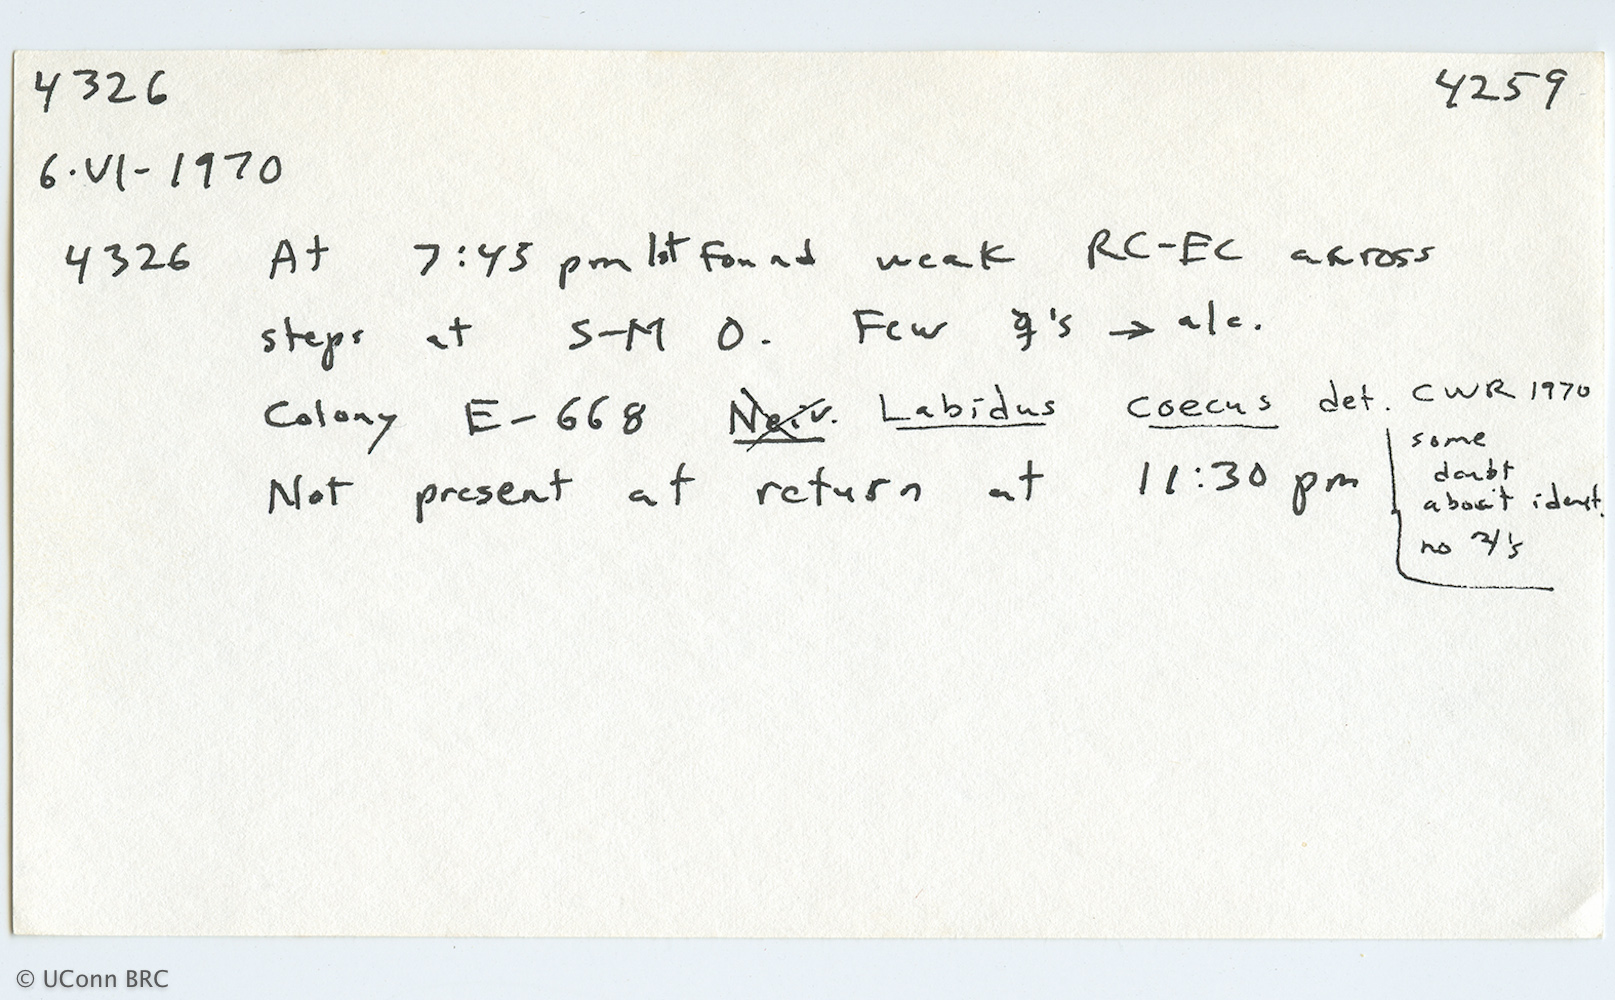 4326 4259
6·VI-1970
4326 At 7:45 pm 1st Found weak RC-EC across
steps at S-M O. Few ☿'s → alc.
Colony E-668 Neiv. Labidus coecus det. CWR 1970
some
doubt
about ident.
no ♃'s
Not present at return at 11:30 pm
© UConn BRC